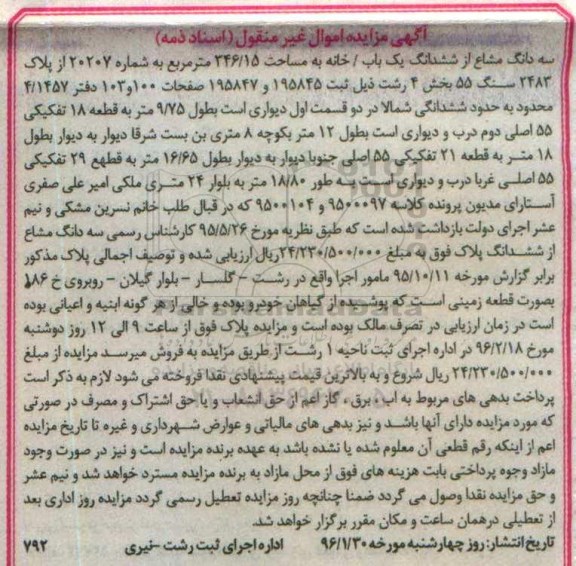 آگهی مزایده اموال غیر منقول (اسناد ذمه)
سه دانگ مشاع از ششدانگ یک باب / خانه به مساحت ۳۴۶/۱۵ مترمربع به شماره ۲۰۲۰۷ از پلاک
۲۴۸۳ سنگ ۵۵ بخش ۴ رشت ذیل ثبت ۱۹۵۸۴۵ و ۱۹۵۸۴۷ صفحات ۱۰۰و۱۰۳ دفتر ۴/۱۴۵۷
محدود به حدود ششدانگی شمالا در دو قسمت اول دیواری است بطول ۹/۷۵ متر به قطعه ۱۸ تفکیکی
۵۵ اصلی دوم درب و دیواری است بطول ۱۲ متر بکوچه ۸ متری بن بست شرقا دیوار به دیوار بطول
۱۸ متر به قطعه ۲۱ تفکیکی ۵۵ اصلی جنوبا دیوار به دیوار بطول ۱۶/۶۵ متر به قطهع ۲۹ تفکیکی
۵۵ اصلی غربا درب و دیواری است به طور ۱۸/۸۰ متر به بلوار ۲۴ متری ملکی امیر علی صفری
آستارای مدیون پرونده کلاسه ۹۵۰۰۰۹۷ و ۹۵۰۰۱۰۴ که در قبال طلب خانم نسرین مشکی و نیم
عشر اجرای دولت بازداشت شده است که طبق نظریه مورخ ۹۵/۵/۲۶ کارشناس رسمی سه دانگ مشاع
از ششدانگ پلاک فوق به مبلغ ۲۴/۲۳۰/۵۰۰/۰۰۰ریال ارزیابی شده و توصیف اجمالی پلاک مذکور
برابر گزارش مورخه ۹۵/۱۰/۱۱ مامور اجرا واقع در رشت - گلسار - بلوار گیلان - روبروی خ ۱۸۶
بصورت قطعه زمینی است که پوشیده از گیاهان خودرو بوده و خالی از هر گونه ابنیه و اعیانی بوده
است در زمان ارزیابی در تصرف مالک بوده است و مزایده پلاک فوق از ساعت ۹ الی ۱۲ روز دوشنبه
مورخ ۹۶/۲/۱۸ در اداره اجرای ثبت ناحیه ۱ رشت از طریق مزایده به فروش میرسد مزایده از مبلغ
۲۴/۲۳۰/۵۰۰/۰۰۰ ریال شروع و به بالاترین قیمت پیشنهادی نقدا فروخته می شود لازم به ذکر است
پرداخت بدهی های مربوط به اب، برق ، گاز اعم از حق انشعاب و یا حق اشتراک و مصرف در صورتی
که مورد مزایده دارای آنها باشد و نیز بدهی های مالیاتی و عوارض شهرداری و غیره تا تاریخ مزایده
اعم از اینکه رقم قطعی آن معلوم شده یا نشده باشد به عهده برنده مزایده است و نیز در صورت وجود
مازاد وجوه پرداختی بابت هزینه های فوق از محل مازاد به برنده مزایده مسترد خواهد شد و نیم عشر
و حق مزایده نقدا وصول می گردد ضمنا چنانچه روز مزایده تعطیل رسمی گردد مزایده روز اداری بعد
از تعطیلی درهمان ساعت و مکان مقرر برگزار خواهد شد.
تاریخ انتشار: روز چهارشنبه مورخه ۹۶/۱/۳۰ اداره اجرای ثبت رشت -نیری ۷۹۲